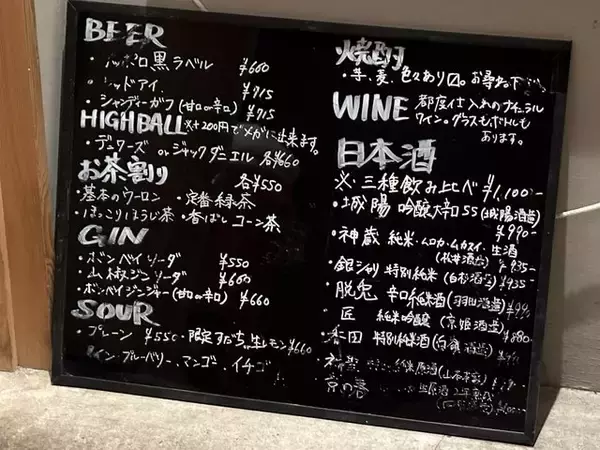 BEER
・サッポロ黒ラベル ¥660
・レッドアイ ¥715
・シャンディーガフ(甘口or辛口) ¥715
HIGHBALL ※+200円でメガに出来ます。
・デュワーズ or ジャックダニエル 各¥660
お茶割り 各¥550
・基本のウーロン ・定番緑茶
・ほっこりほうじ茶 ・香ばしコーン茶
GIN
・ボンベイジンソーダ ¥550
・山椒ジンソーダ ¥600
・ボンベイジンジャー(甘口or辛口) ¥660
SOUR
・プレーン ¥550 ・限定すだち、生レモン ¥660
パイン、ブルーベリー、マンゴー、イチゴ
焼酎
・芋、麦、色々あり〼。お尋ね下
WINE 都度仕入れのナチュラル
ワイン。グラスもボトルも
あります。
日本酒
※三種飲み上比べ ¥1,100-
・城陽 吟醸大辛口55(城陽酒造) ¥990-
・神蔵 純米・ムロカ・ムカスイ・生酒(松井酒造) ¥935-
・銀シャリ 特別純米(白杉酒造) ¥935-
・脱兎 辛口純米酒(羽田酒造)
・匠 純米吟醸(京姫酒造) ¥880-
特別純米酒(白嶺酒造)
原酒
京の春